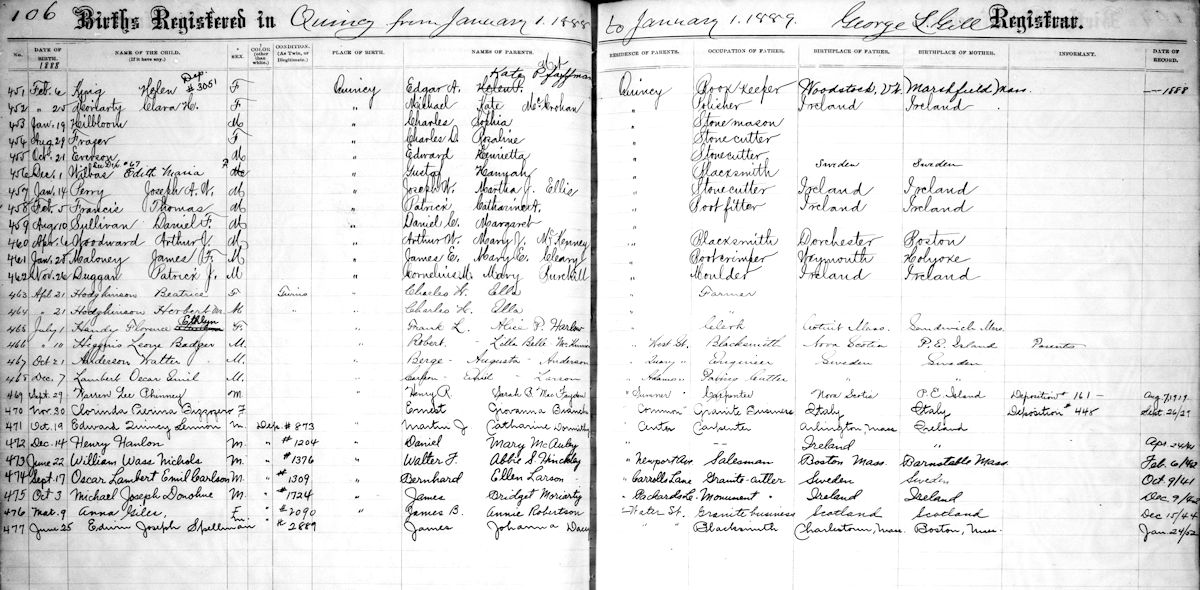 106 Births Registered in Quincy from January 1. 1888 to January 1. 1889. George L. Gill Registrar.
No. DATE OF BIRTH. 1888 NAME OF THE CHILD. (If it have any.) SEX. COLOR (other than white.) CONDITION. (As Twin, or Illegitimate.) PLACE OF BIRTH. NAMES OF PARENTS. RESIDENCE OF PARENTS. OCCUPATION OF FATHER. BIRTHPLACE OF FATHER. BIRTHPLACE OF MOTHER. INFORMANT. DATE OF RECORD.
Dep. #3051 Kate P. Paffman
451 Feb. 6 King Helen F Quincy Edgar A. Helen F. Quincy Bookkeeper Woodstock, Vt. Marshfield Mass. — 1888
452 " 25 Moriarty Clara H. F " Michael Kate McCrohan " Polisher Ireland Ireland
453 Jan. 19 Heilbloom M " Charles Sophia " Stone mason
454 Aug. 29 Frazer F " Charles D. Rosaline " Stonecutter
455 Oct. 21 Everson M " Edward Henrietta " Stonecutter
See Dep. #67
456 Dec. 1 Wilbas Edith Maria F " Gustaf Hannah " Blacksmith Sweden Sweden
457 Jan. 14 Perry Joseph A. W. M " Joseph W. Martha J. Ellis " Stonecutter Ireland Ireland
458 Feb. 5 Francis Thomas M " Patrick Catharine A. " Bootfitter Ireland Ireland
459 Aug 10 Sullivan Daniel F. M " Daniel C. Margaret "
460 Apr. 6 Woodward Arthur J. M " Arthur W. Mary J. McKenney " Blacksmith Dorchester Boston
461 Jan. 25 Maloney James F. M " James E. Mary E. Cleary " Bootcrimper Weymouth Holyoke
462 Nov. 26 Duggan Patrick J. M " Cornelius M. Mary Burchill " Moulder Ireland Ireland
463 Apl. 21 Hodgkinson Beatrice F Twins " Charles H. Ella " Farmer
464 " 21 Hodgkinson Herbert M " " Charles H. Ella "
465 July 1 Handy Florence Ethlyn F. " Frank L. Alice P. Harlow " Clerk Cotuit Mass. Sandwich Mass.
466 " 10 Higgins Leon Badger M. " Robert Lilla Belle " West St. Blacksmith Nova Scotia P. E. Island Parents
467 Oct 21 Anderson Walter M. " Berge Augusta Anderson " Quarry Engineer Sweden Sweden
468 Dec. 7 Lambert Oscar Emil M. " Carlson Larson " Adams Paving Cutter " "
469 Sept. 29 Warren Lee Chinney M " Henry R. Sarah B. MacFayden " Sumner Carpenter Nova Scotia P. E. Island Deposition # 161 — Aug 7, 1919
470 Nov. 30 Clorinda F " Ernest Giovanna Bianchi " Common Granite Business Italy Italy Deposition # 448 Sept. 26/27
471 Oct. 19 Edward Quincy Lennon M " Dep. # 873 " Martin J Catharine " Center Carpenter Arlington, Mass Ireland
472 Dec. 14 Henry Hanlon M. " # 1204 " Daniel Mary McAuley " " Ireland " Apr 24/41
473 June 22 William Wass Nichols M. " # 1376 " Walter F. Abbie S. Hinckley " Newport Ave. Salesman Boston Mass. Barnstable Mass. Feb. 6/42
474 Sept. 17 Oscar Lambert Emil Carlson M " # 1309 " Bernhard Ellen Larson " Carrolls Lane Granite cutler Sweden Sweden Oct. 9/41
475 Oct 3 Michael Joseph Donohue M " # 1724 " James Bridget Moriarty " Monument " Ireland Ireland Dec 9/42
476 Mar. 9 Anna Giles, F " # 2090 " James B. Annie Robertson " Water St. Granite business Scotland Scotland Dec 15/44
477 June 25 Edwin Joseph Spellman M " # 2889 James Johanna " " Blacksmith Charlestown, Mass. Boston, Mass. Jan. 24/52